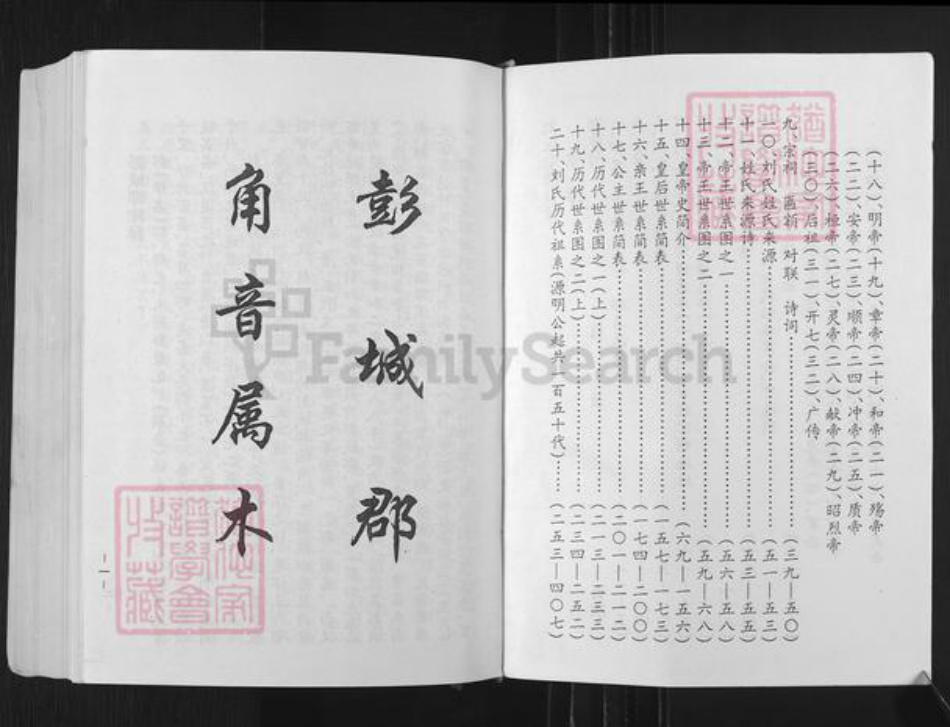 (十八)、明帝(十九)、章帝(二十)、和帝(二一)、殇帝
(二二)、安帝(二三)、顺帝(二四)、冲帝(二五)、质帝
(二六)、桓帝(二七)、灵帝(二八)、献帝(二九)、昭烈帝
(三〇)、后祖(三一)、开七(三二)、广传
九、宗祠 匾额 对联 诗词……(三九—五〇)
一〇、刘氏姓氏来源……(五一—五三)
十一、姓氏来源诗……(五三—五五)
十二、帝王世系图之一……(五六—五八)
十三、帝王世系图之二……(五九—六八)
十四、皇帝史简介……(六九—一五六)
十五、皇后世系简表……(一五七—一七三)
十六、亲王世系简表……(一七四—二〇〇)
十七、公主世系简表……(二〇一—二一二)
十八、历代世系图之一(上)……(二一三—二三三)
十九、历代世系图之二(上)……(二三四—二五二)
二十、刘氏历代祖系(源明公起共一百五十代)……(二五三—四〇七)
彭城郡
角音属木
-一-
FamilySearch